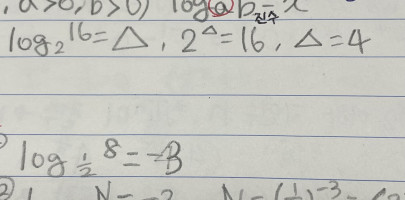 , a>0, b>0) log(a)b = x
진수
log₂16=△, 2^△=16, △=4
log_{1/2} 8 = -3
② N= -3 N=(1/2)^{-3}